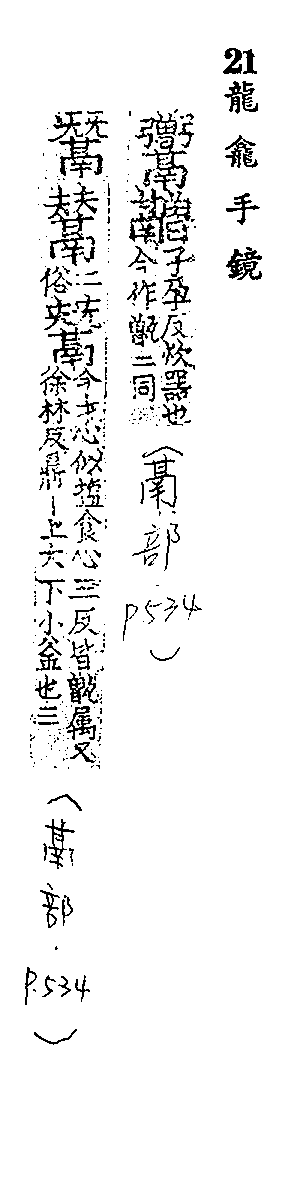 21龍龕手鏡
子孕反炊器也
今作甑二同
(鬲部.p.534)
俗
今才心似塩食心三反皆甑属又
徐林反鼎丨上大下小釜也三
(鬲部.p.534)